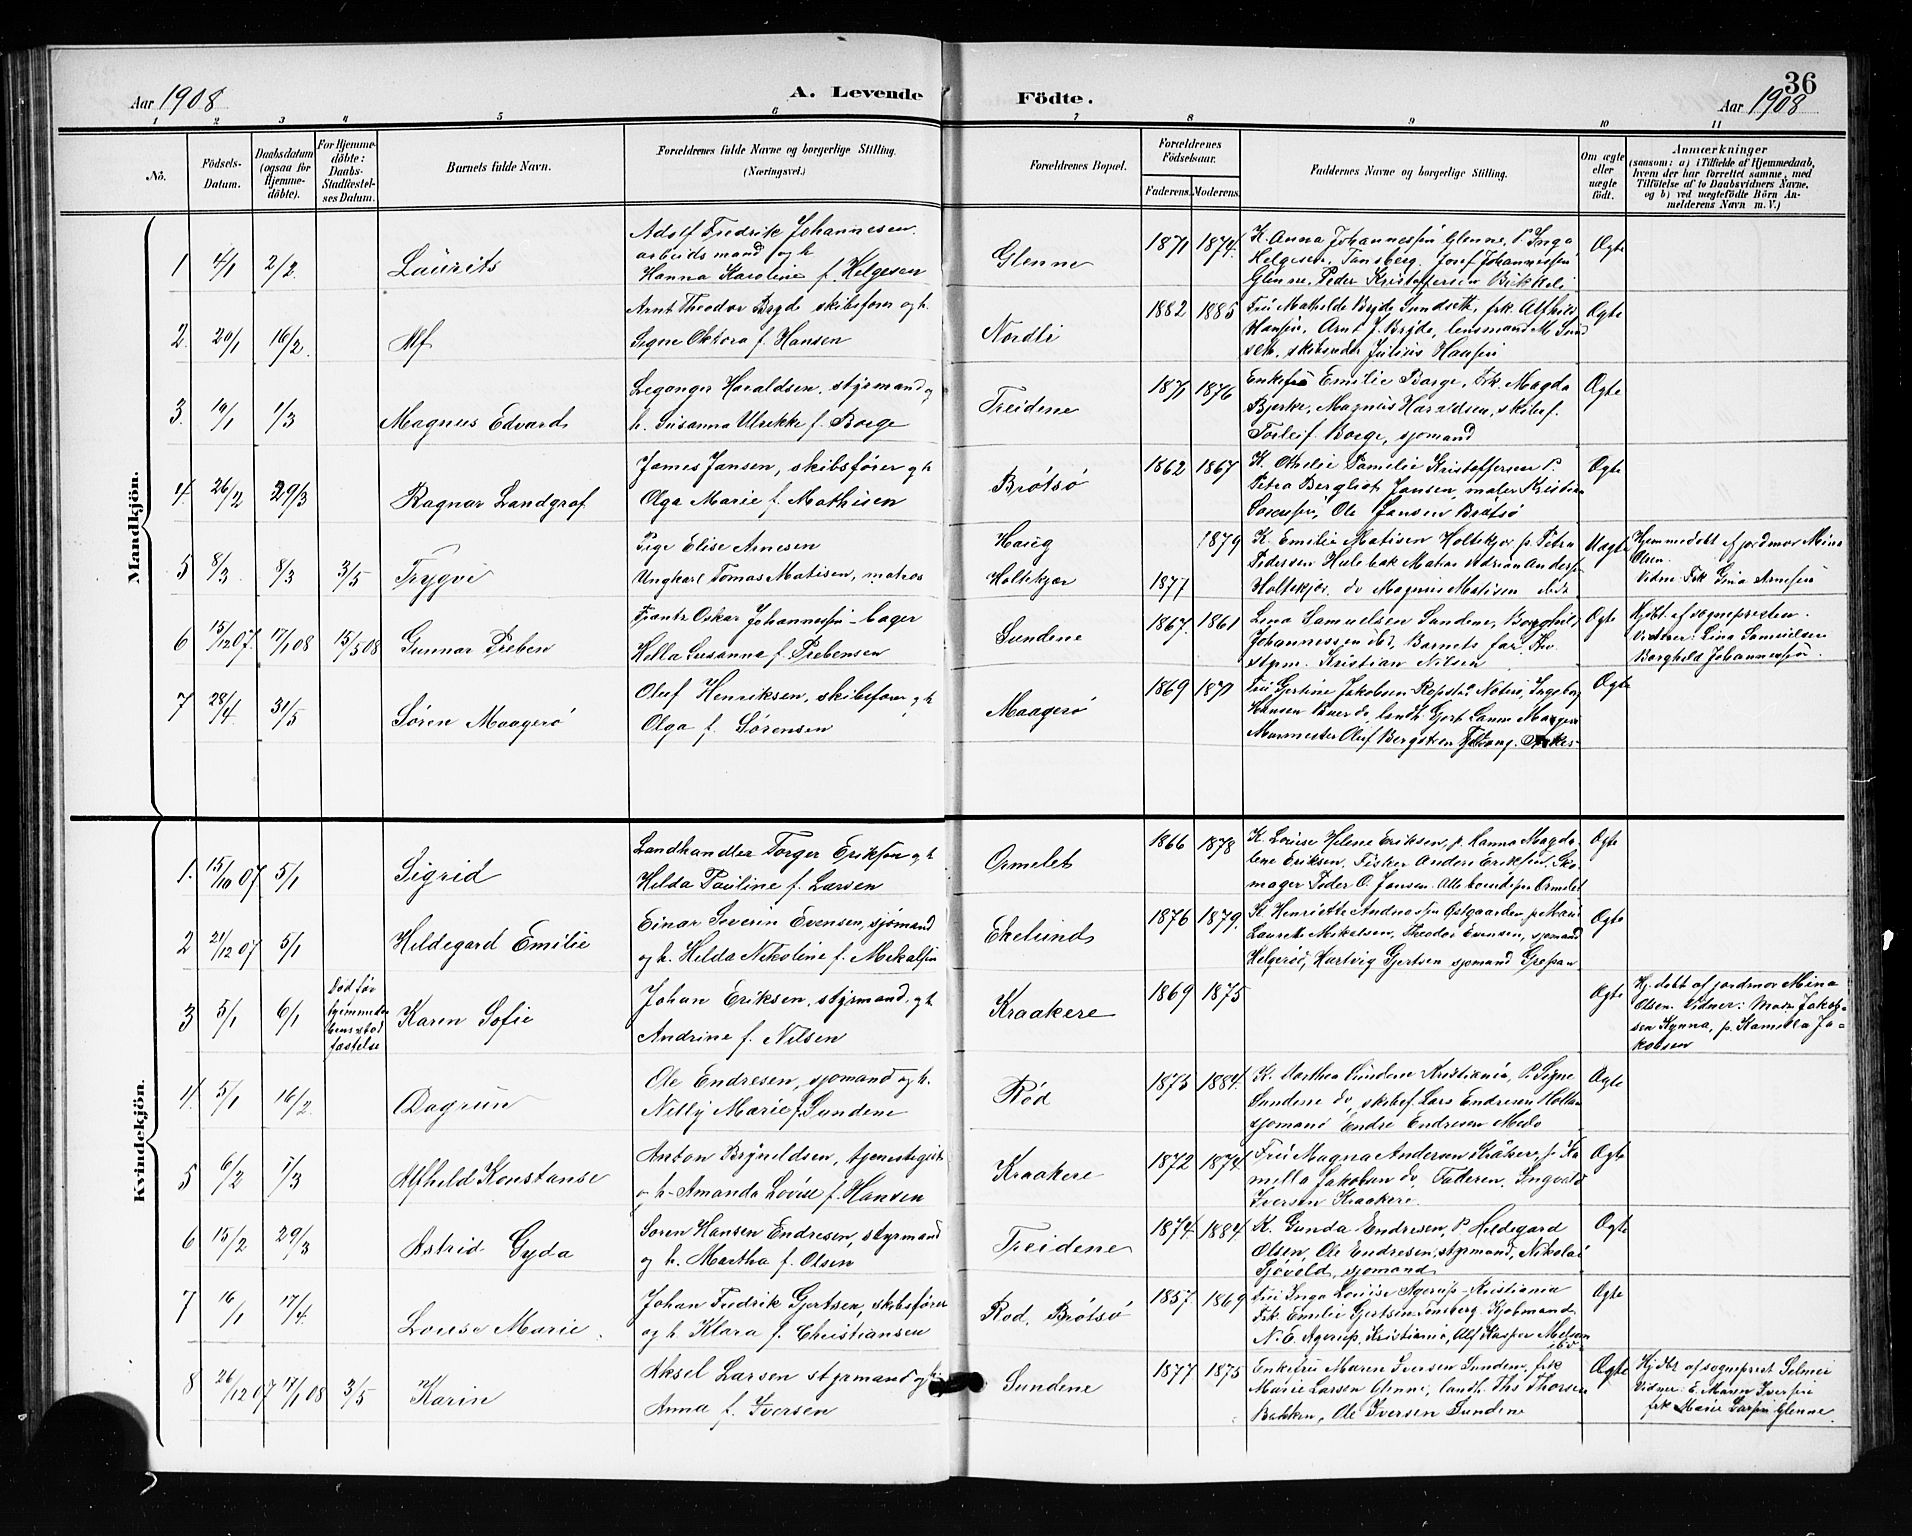 36
Aar 1908 A. Levende Födte. Aar 1908
1 2 3 4 5 6 7 8 9 10 11
No. Födsels-Datum. Daabsdatum (ogsaa for Hjemmedöbte). For Hjemmedöbte: Daabs-Stadfæstelses Datum. Barnets fulde Navn. Forældrenes fulde Navne og borgerlige Stilling. (Næringsvei.) Forældrenes Bopæl. Forældrenes Födselsaar. Faderens. Moderens. Faddernes Navne og borgerlige Stilling. Om ægte eller uægte födt. Anmærkninger (saasom: a) i Tilfælde af Hjemmedaab, hvem der har forrettet samme, med Tilföielse af to Daabsvidners Navne, og b) ved uægtefödte Börn Anmelderens Navn m. V.)
Mandkjön.
1 4/1 2/2 Laurits
Adolf Fredrik Johannesen
arbeidsmand og h
Hanna Karoline f. Helgesen
Glenne 1871 1874
K. Anna Johannessen Glenne, P. Inga
Helgesen, Tønsberg, Josef Johannessen
Glenne, Peder Kristoffersen Bikkeli
Ægte
2. 20/1 16/2. Alf
Arnt Theodor Bryd skibsfører og h.
Signe Oktora f. Hansen
Nordli 1882 1885
Fru Mathilde Bryde Sundseth, frk. Alfhild
Hansen, Arnt J. Bryde, lensmand M. Sund
seth, Julius Hansen
Ægte
3. 19/1 1/3 Magnus Edvard
Leganger Haraldsen, styrmand og
h. Susanna Ulrikke f. Borge
Treidene 1871 1876
Enkefru Emilie Borge, Frk. Magda
Bjerke, Magnus Haraldsen, skibsf.
Torleif Borge, sjømand
Ægte
4. 26/2 29/3 Ragnar Landgraf
James Jansen, skibsfører og h
Olga Marie f. Mathisen
Brøtsø 1862 1867
K. Othelie Pamilie Kristoffersen P.
Petra Bergliot Jansen, maler Kristian
Ole Jansen Brøtsø
Ægte
5 8/3 8/3 3/5 Trygve
Pige Elise Arnesen
Ungkarl Tomas Matisen, matros
Haug
Holtekjær 1877 1879
K. Emilie Matisen Holtekjær p. Petra
Pedersen Hulebak Adrian Anders
Holtekjær, do Magnus Matisen ibid
Uægte
Hjemmedøbt af jordmor Mina
Olsen.
Vidne: Frk Gina Arnesen
6 15/12 07. 17/1 08 15/5 08 Gunnar Preben
Frants Oskar Johannessen - bager
Hella Susanna f. Prebensen
Sundene 1867. 1861
Lina Samuelsen Sundene, Borghild
Johannessen ibd, Barnets far,
styrm. Kristian Nilsen
Ægte
Hjdbt af sogneprasten.
Vidner: Lina Samuelsen
Borghild Johannessen.
7 28/4. 31/5 Søren Maagerø
Oluf Henriksen, skibsfører og h
Olga f. Sørensen
Maagerø 1869 1871
Fru Gertine Jakobsen Notterø, Ingeborg
Hansen
Murmester Oluf Bergsten
Ægte
Kvindekjön.
1. 15/10 07 5/1 Sigrid
Landhandler Torger Eriksen og h
Hilda Pauline f. Larsen
Ormelet 1866 1878
K. Lovise Helene Eriksen, p. Hanna Magda-
lene Eriksen, Fisker Anders Eriksen, Sko-
mager Peder O. Jansen. Alle Ormelet
Ægte
2 21/12 07 5/1 Hildegard Emilie
Einar Severin Evensen, sjømand
og h. Hilda Nikoline f. Mikalsen
Ekelund 1876 1879.
K. Henriette Andreassen Østgaarden, p. Marie
Laurette Mikelsen, Theodor Evensen, sjømand
Helgerøi, Hartvig Gjertsen sjømand Grepan
Ægte
3 5/1 6/1
Død før
hjemmeda
bens stad
fæstelse
Karen Sofie
Johan Eriksen, styrmand, og h
Andrine f. Nilsen
Kraakere 1869 1875 Ægte
Hj.døbt af jordmor Mina
Olsen. Vidner: Jakob-
sen Kynna, p. Kamilla Ja-
kobsen
4. 5/1 16/2. Dagrun
Ole Endresen, sjømand og h.
Nelly Marie f. Sundene
Rød 1873 1884.
K. Marthea Sundene Kristiania, P. Signe
Sundene do, skibsf. Lars Endresen
sjømand Endre Endresen Medø
Ægte
5 6/2 1/3 Alfheld Konstanse
Anton Brynildsen,
og h. Amanda Lovise f. Hansen
Kraakere 1872 1874
Fru Magna Andersen p. Ka
milla Jakobsen do. Faderen, Ingvald
Iversen Kraakere
Ægte
6 15/2 29/3 Astrid Gyda
Søren Hansen Endresen, styrmand
og h. Martha f. Olsen
Treidene 1874 1884
K. Gunda Endresen, P. Hildegard
Olsen, Ole Endresen, styrmand, Nikolai
Sjøvold, sjømand
Ægte
7 16/1 17/4 Louise Marie.
Johan Fredrik Gjertsen, skibsfører
og h Klara f. Christiansen
Rød, Brøtsø 1857 1869
Fru Inga Louise Agerup - Kristiania
Frk. Emilie Gjertsen Tønsberg, Kjøbmand
N. E. Agerup, Kristiania, Alf Kasper Nilsen
ibd.
Ægte
8 26/12 07 17/1 08 3/5 Karin
Aksel Larsen styrmand og h
Anna f. Iversen
Sundene 1877 1875
Enkefru Maren Iversen Sundene, frk
Marie Larsen Glenne, landh. Ths Thorsen
Bakken, Ole Iversen Sundene
Ægte
Hjdbt af sogneprest Selmer
Vidner: E. Maren Iversen
frk Marie Larsen Glenne.